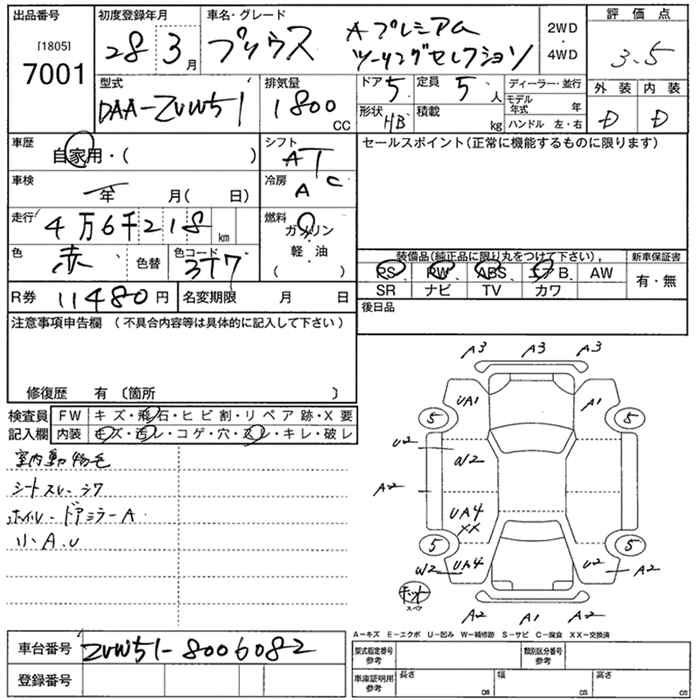 出品番号
[1805]
7001
初度登録年月
28 3月
車名・グレード
プリウス
Aプレミアム
ツーリングセレクション
2WD
・
4WD
評価点
3.5
外装 内装
D D
型式
DAA-ZVW51
排気量
1800
CC
ドア 5
定員 5人
ディーラー・並行
形状 HB
積載 kg
モデル年式 年
ハンドル 左・右
車歴
自家用・( )
シフト
AT
セールスポイント(正常に機能するものに限ります)
車検
年 月( 日)
冷房
AC
走行
4万6千218km
燃料
ガソリン
軽・油
( )
色
赤
色替
色コード
3T7
装備品(純正品に限り丸をつけて下さい)。
PS PW ABS エアB. AW
SR ナビ TV カワ
新車保証書
有・無
R券 11480円
名変期限 月 日
後日品
注意事項申告欄 (不具合内容等は具体的に記入して下さい)
修復歴 有 〔箇所 〕
検査員
記入欄
FW キズ・飛石・ヒビ割・リペア跡・X要
内装 キズ・汚レ・コゲ・穴・スレ・キレ・破レ
室内動物毛
シートスレ・シワ
ホイル・ドアミラーA
小A.U
A3 A3 A3
UA1 A1
5 5
U2
W2
A2
UA4
XX
5 5
W2 UA4 U2 A2
スペア
A2 A1 A2
A-キズ E-エクボ U-凹み W-補修跡 S-サビ C-腐食 XX-交換済
車台番号 ZVW51-8006082
登録番号
型式指定番号
参考
類別区分番号
参考
車庫証明用
参考
長さ cm
幅 cm
高さ cm